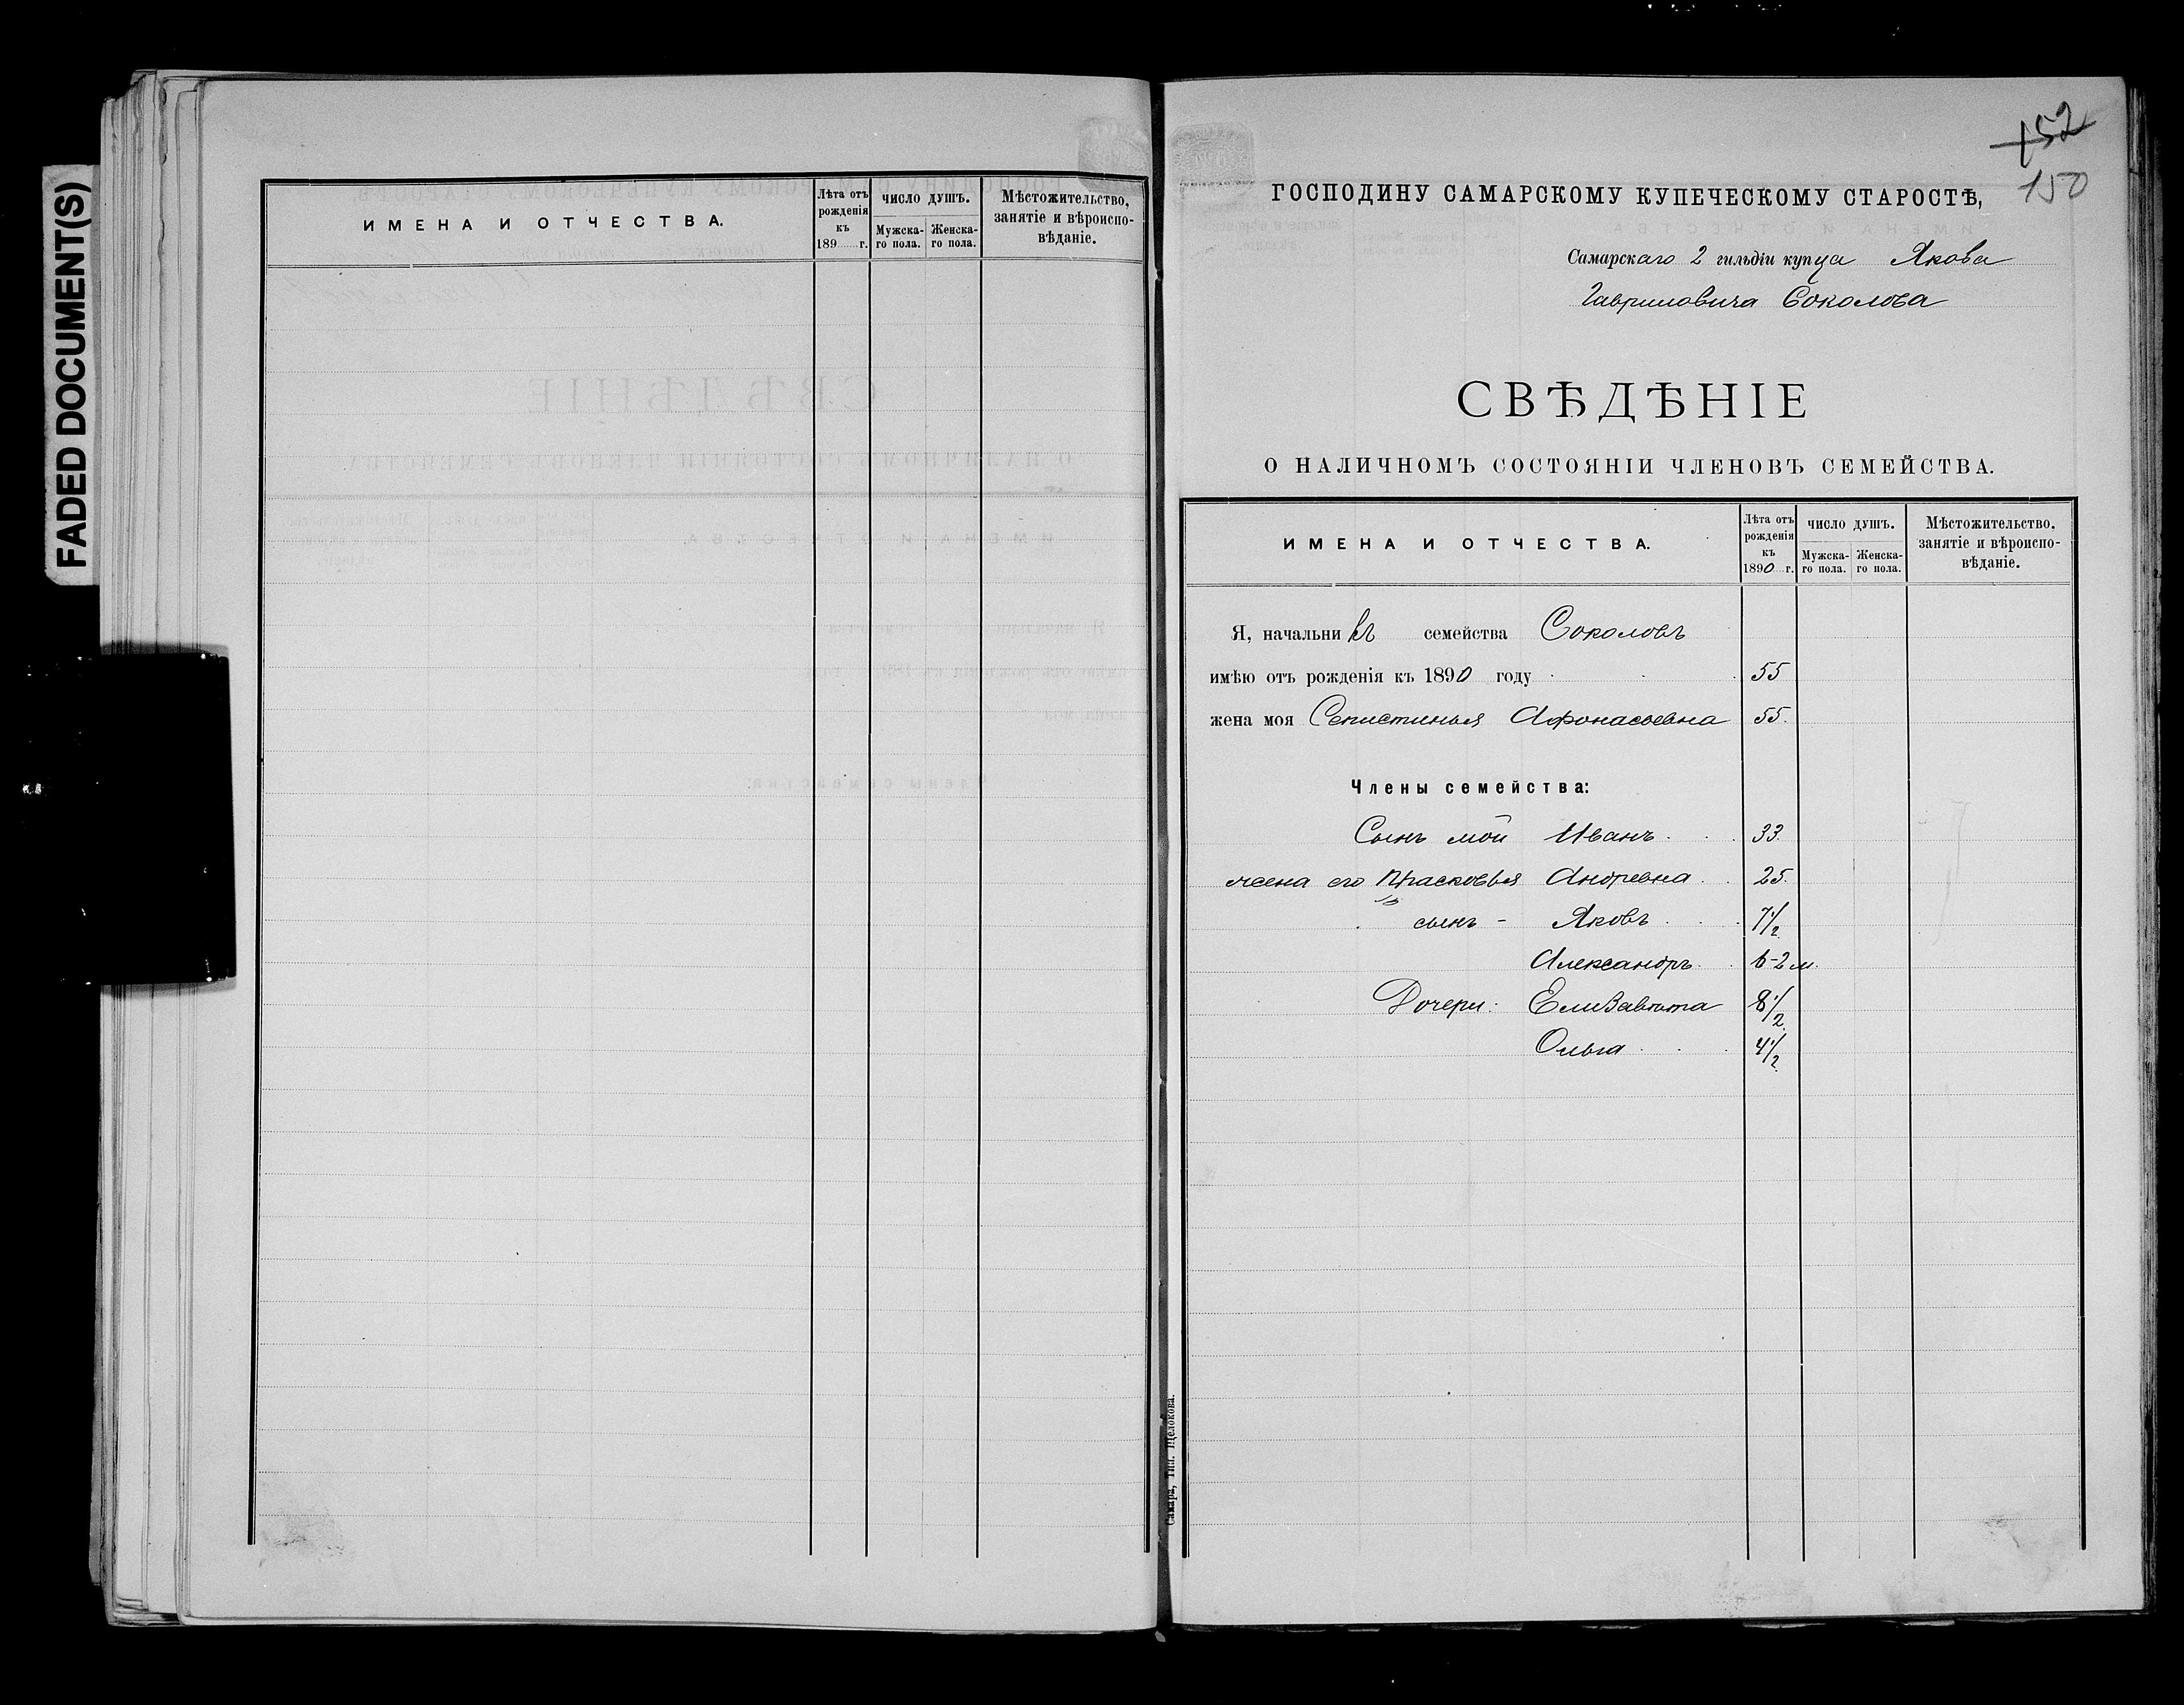 FADED DOCUMENT(S)
ИМЕНА И ОТЧЕСТВА.
Лѣта отъ рожденія къ 189 г.
ЧИСЛО ДУШЪ.
Мужска-го пола.
Женска-го пола.
Мѣстожительство, занятіе и вѣроиспо-вѣданіе.
152
150
ГОСПОДИНУ САМАРСКОМУ КУПЕЧЕСКОМУ СТАРОСТѢ,
Самарскаго 2 гильдіи купца Якова
Гавриловича Соколова
СВѢДѢНІЕ
О НАЛИЧНОМЪ СОСТОЯНІИ ЧЛЕНОВЪ СЕМЕЙСТВА.
ИМЕНА И ОТЧЕСТВА.
Лѣта отъ рожденія къ 1890 г.
ЧИСЛО ДУШЪ.
Мужска-го пола.
Женска-го пола.
Мѣстожительство, занятіе и вѣроиспо-вѣданіе.
Я, начальникъ семейства Соколовъ
имѣю отъ рожденія къ 1890 году 55
жена моя Афонасьевна 55.
Члены семейства:
Сынъ мой Иванъ 33.
жена его Прасковья Андревна 25.
сынъ - Яковъ 7 1/2
Александръ 6-2 м.
Дочери: Елизавѣта 8 1/2
Ольга 4 1/2
Самара, Тип. Щелокова.